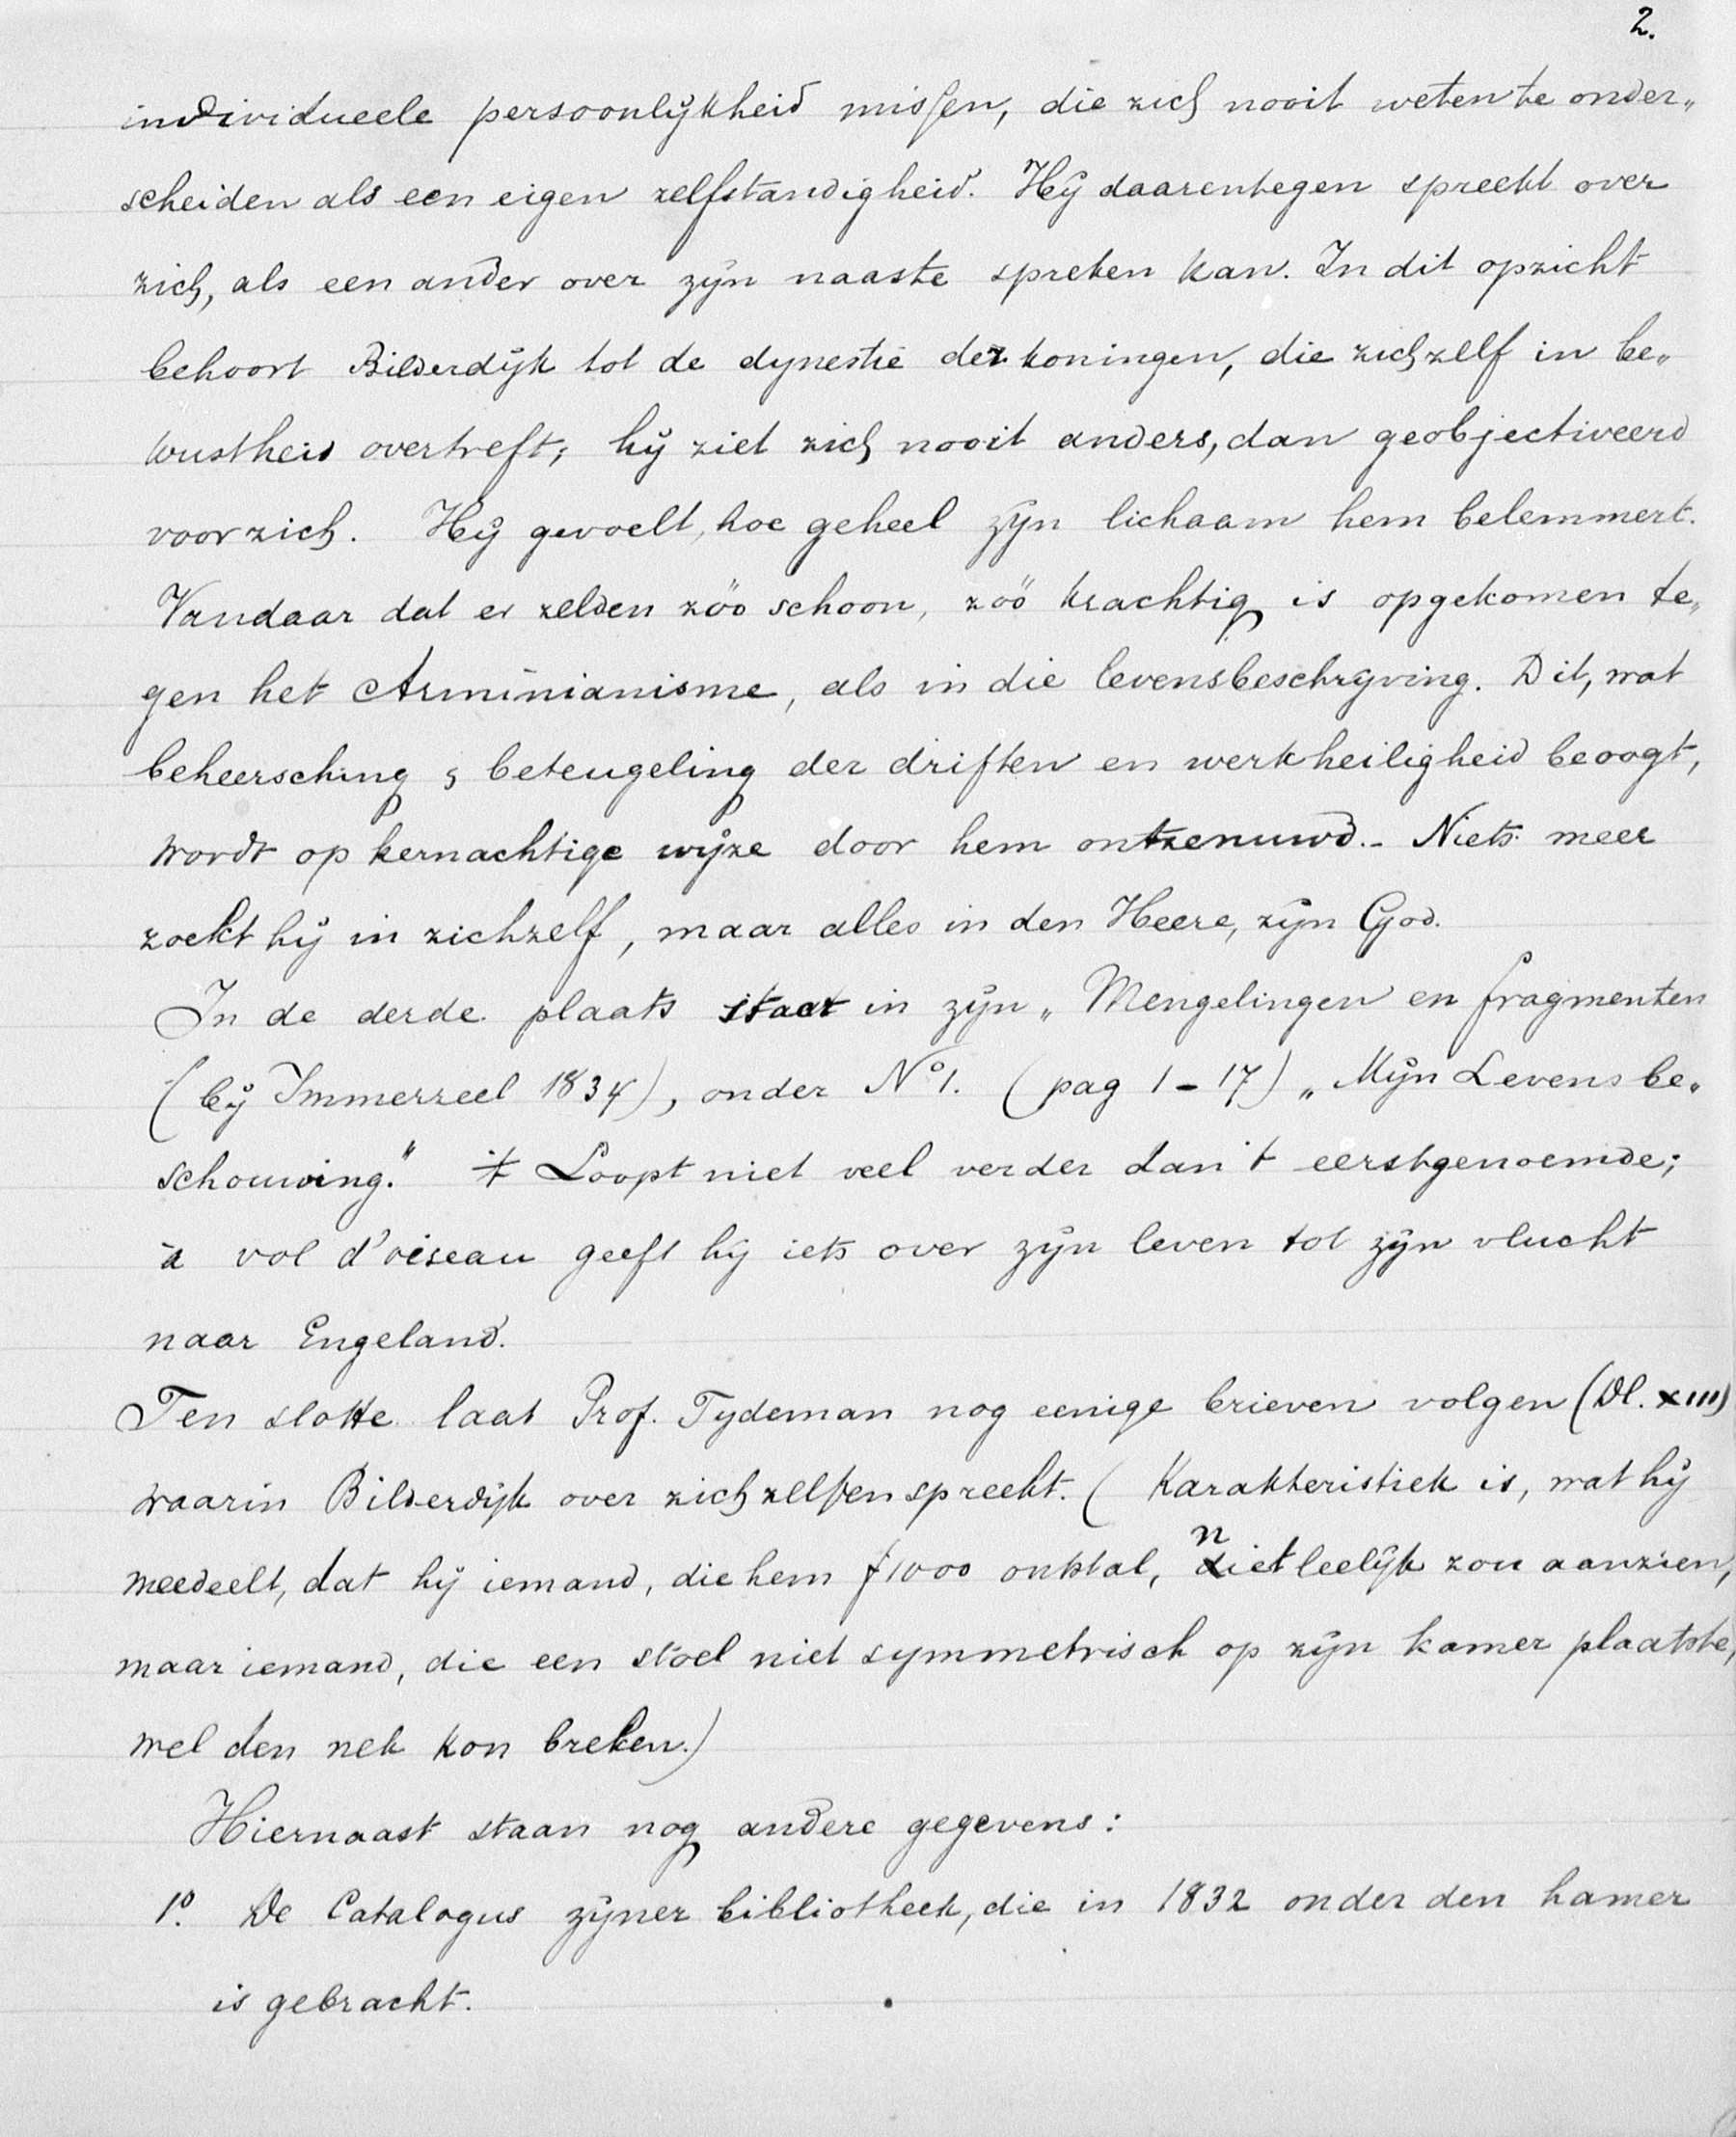 2.
individueele persoonlijkheid missen, die zich nooit weten te onder„
scheiden als een eigen zelfstandigheid. Hij daarentegen spreekt over
zich, als een ander over zijn naaste spreken kan. In dit opzicht
behoort Bilderdijk tot de dynestie der koningen, die zichzelf in be„
wustheid overtreft; hij ziet zich nooit anders, dan geobjectiveerd
voor zich. Hij gevoelt, hoe geheel zijn lichaam hem belemmert.
Vandaar dat er zelden zóó schoon, zóó krachtig is opgekomen te„
gen het Arminianisme, als in die levensbeschrijving. Dit, wat
beheersching & beteugeling der driften en werkheiligheid beoogt,
wordt op kernachtige wijze door hem ontzenuwd. - Niets meer
zoekt hij in zichzelf, maar alles in den Heere, zijn God.
In de derde plaats staat in zijn „Mengelingen en fragmenten
(bij Immerzeel 1834), onder No 1. (pag 1 - 17) „Mijn Levensbe„
schouwing." 't Loopt niet veel verder dan 't eerstgenoemde;
à vol d'oiseau geeft hij iets over zijn leven tot zijn vlucht
naar Engeland.
Ten slotte laat Prof. Tydeman nog eenige brieven volgen (Dl. XIII)
waarin Bilderdijk over zichzelfen spreekt. (Karakteristiek is, wat hij
meedeelt, dat hij iemand, die hem f 1000 ontstal, niet leelijk zou aanzien,
maar iemand, die een stoel niet symmetrisch op zijn kamer plaatste,
wel den nek kon breken.)
Hiernaast staan nog andere gegevens:
1o. De Catalogus zijner bibliotheek, die in 1832 onder den hamer
is gebracht.